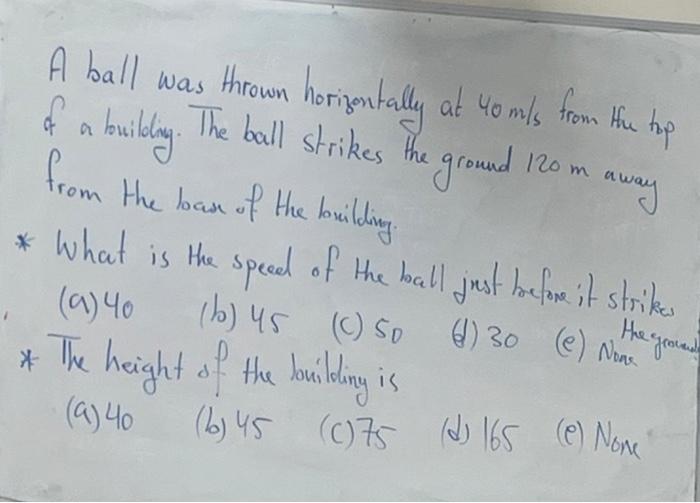 A ball was thrown horizontally at 40 m/s from the top
of a building. The ball strikes the ground 120 m away
from the base of the building.
* What is the speed of the ball just before it strikes
the ground
(a) 40 (b) 45 (c) 50 (d) 30 (e) None
* The height of the building is
(a) 40 (b) 45 (c) 75 (d) 165 (e) None